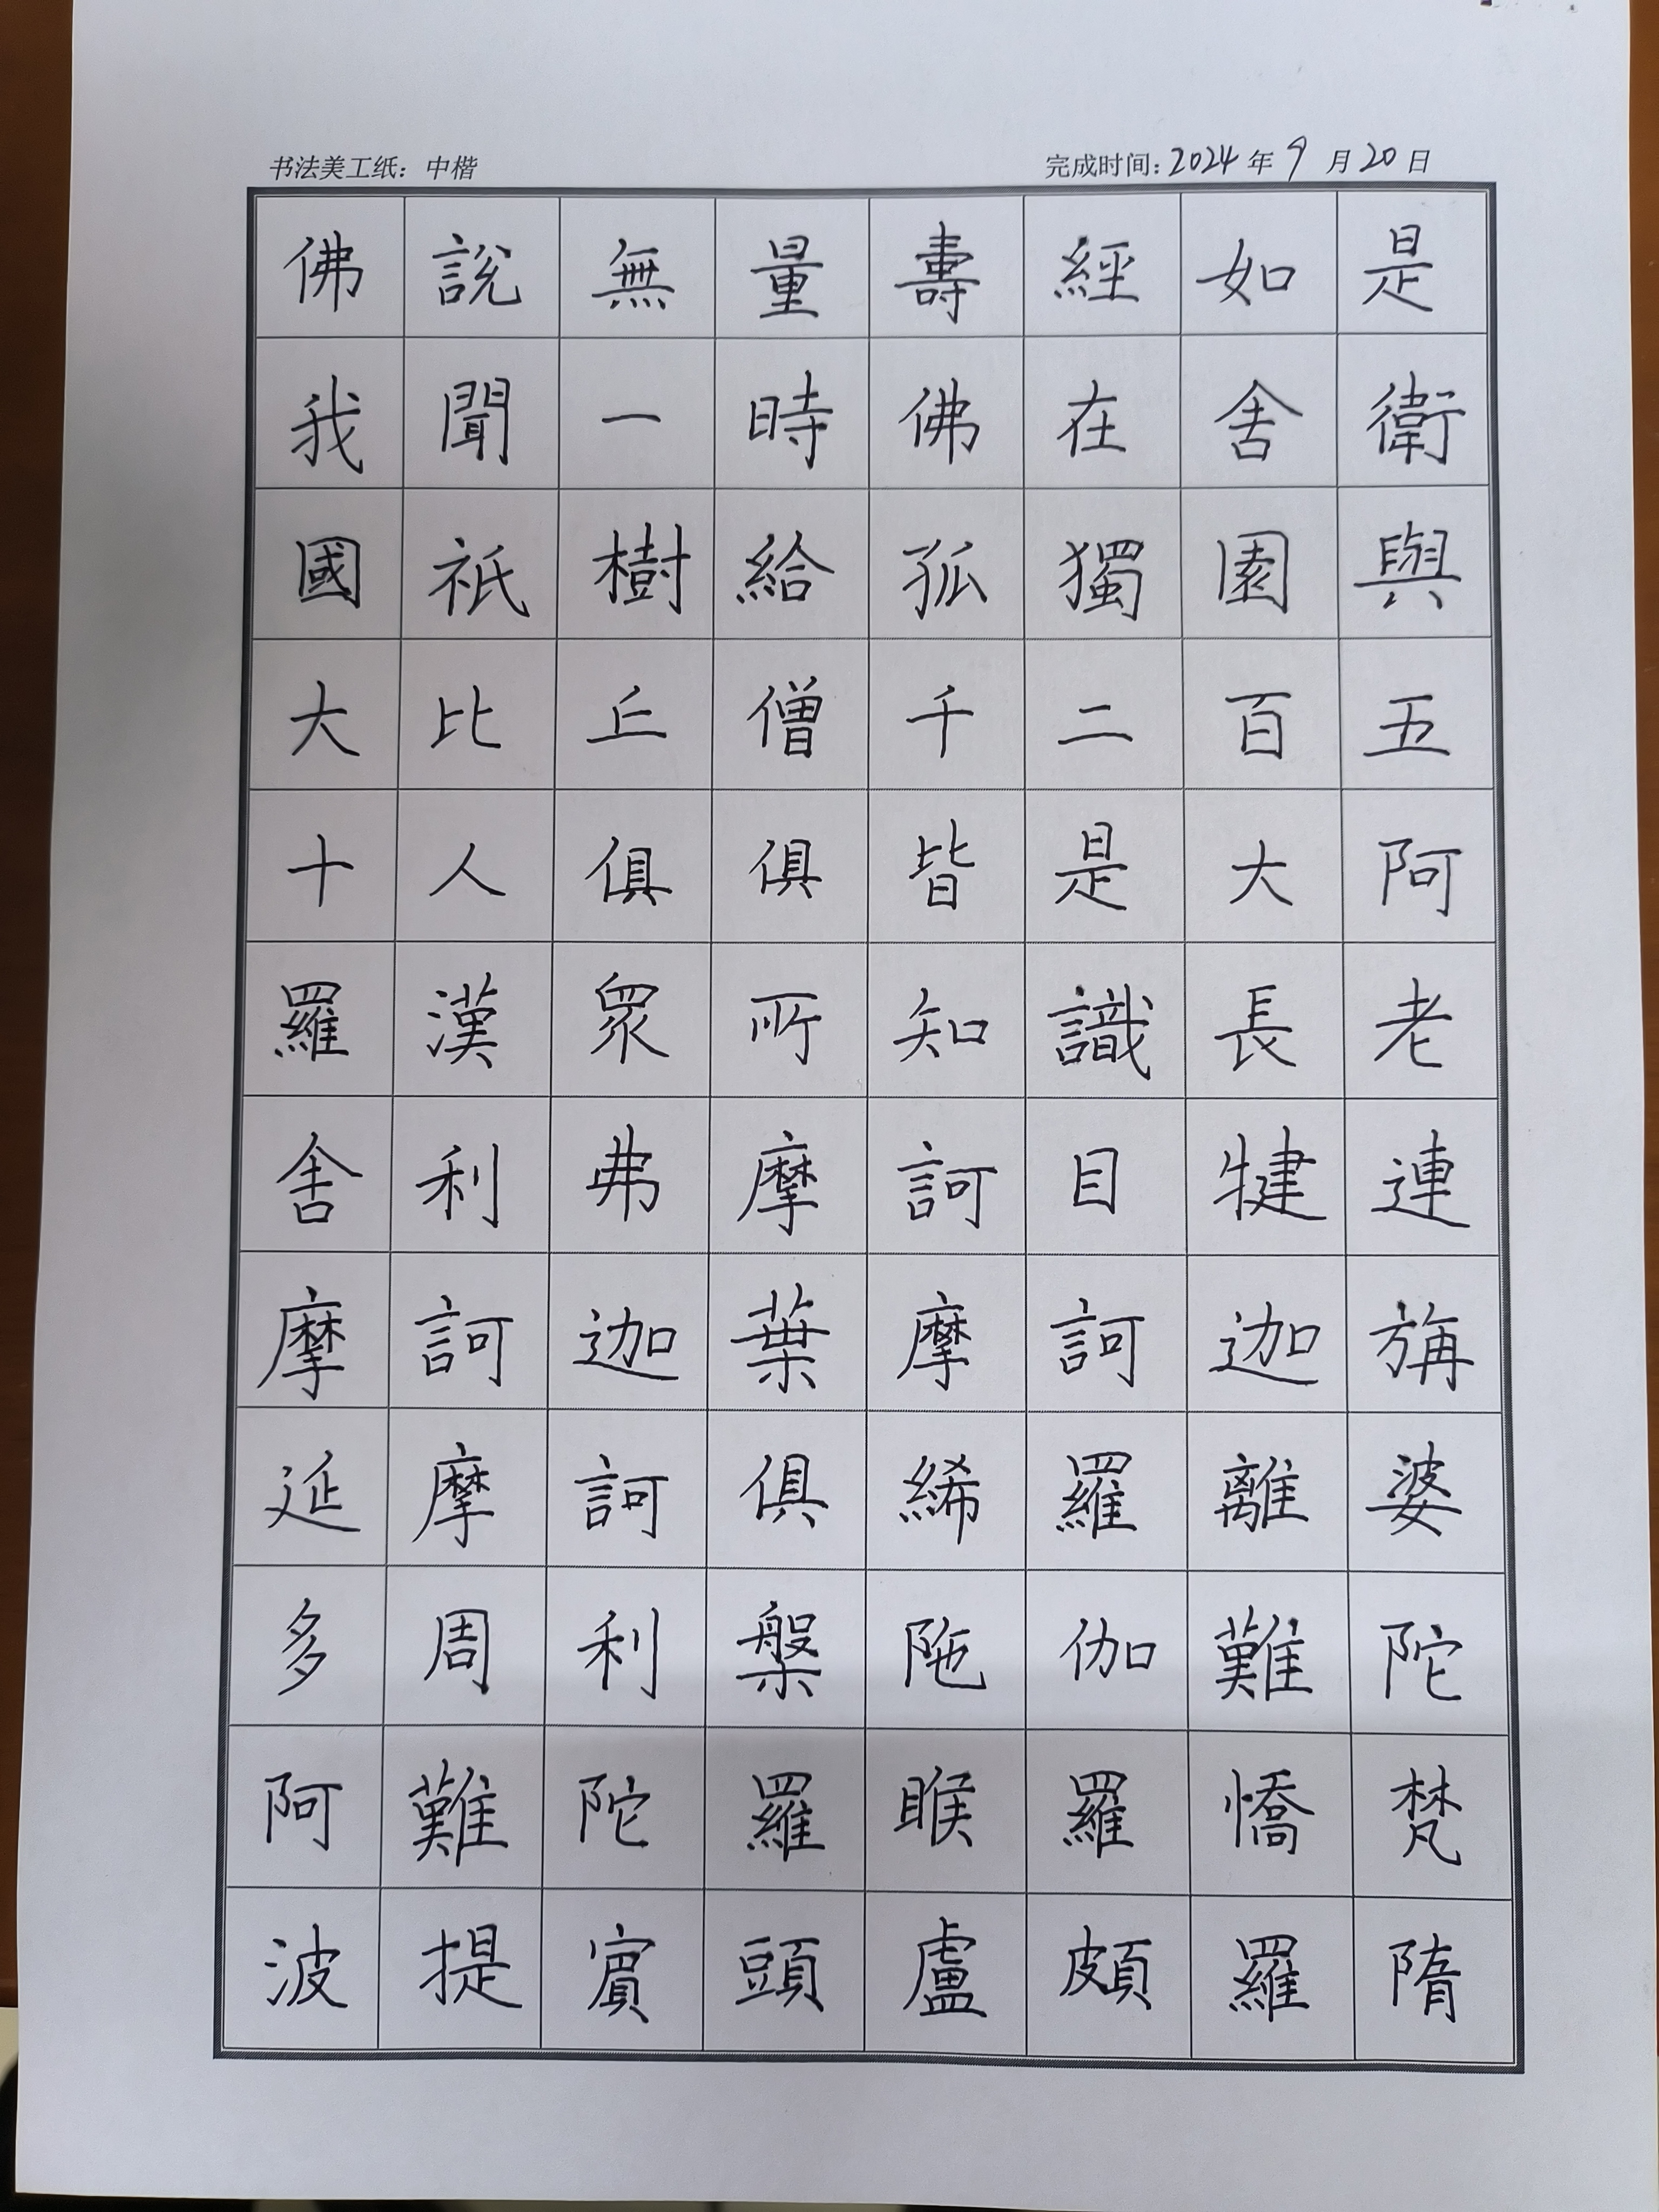 书法美工纸：中楷
完成时间：2024年9月20日
佛說無量壽經如是
我聞一時佛在舍衛
國祇樹給孤獨園與
大比丘僧千二百五
十人俱俱皆是大阿
羅漢眾所知識長老
舍利弗摩訶目犍連
摩訶迦葉摩訶迦旃
延摩訶俱絺羅離婆
多周利槃陁伽難陀
阿難陀羅睺羅憍梵
波提賓頭盧頗羅隋